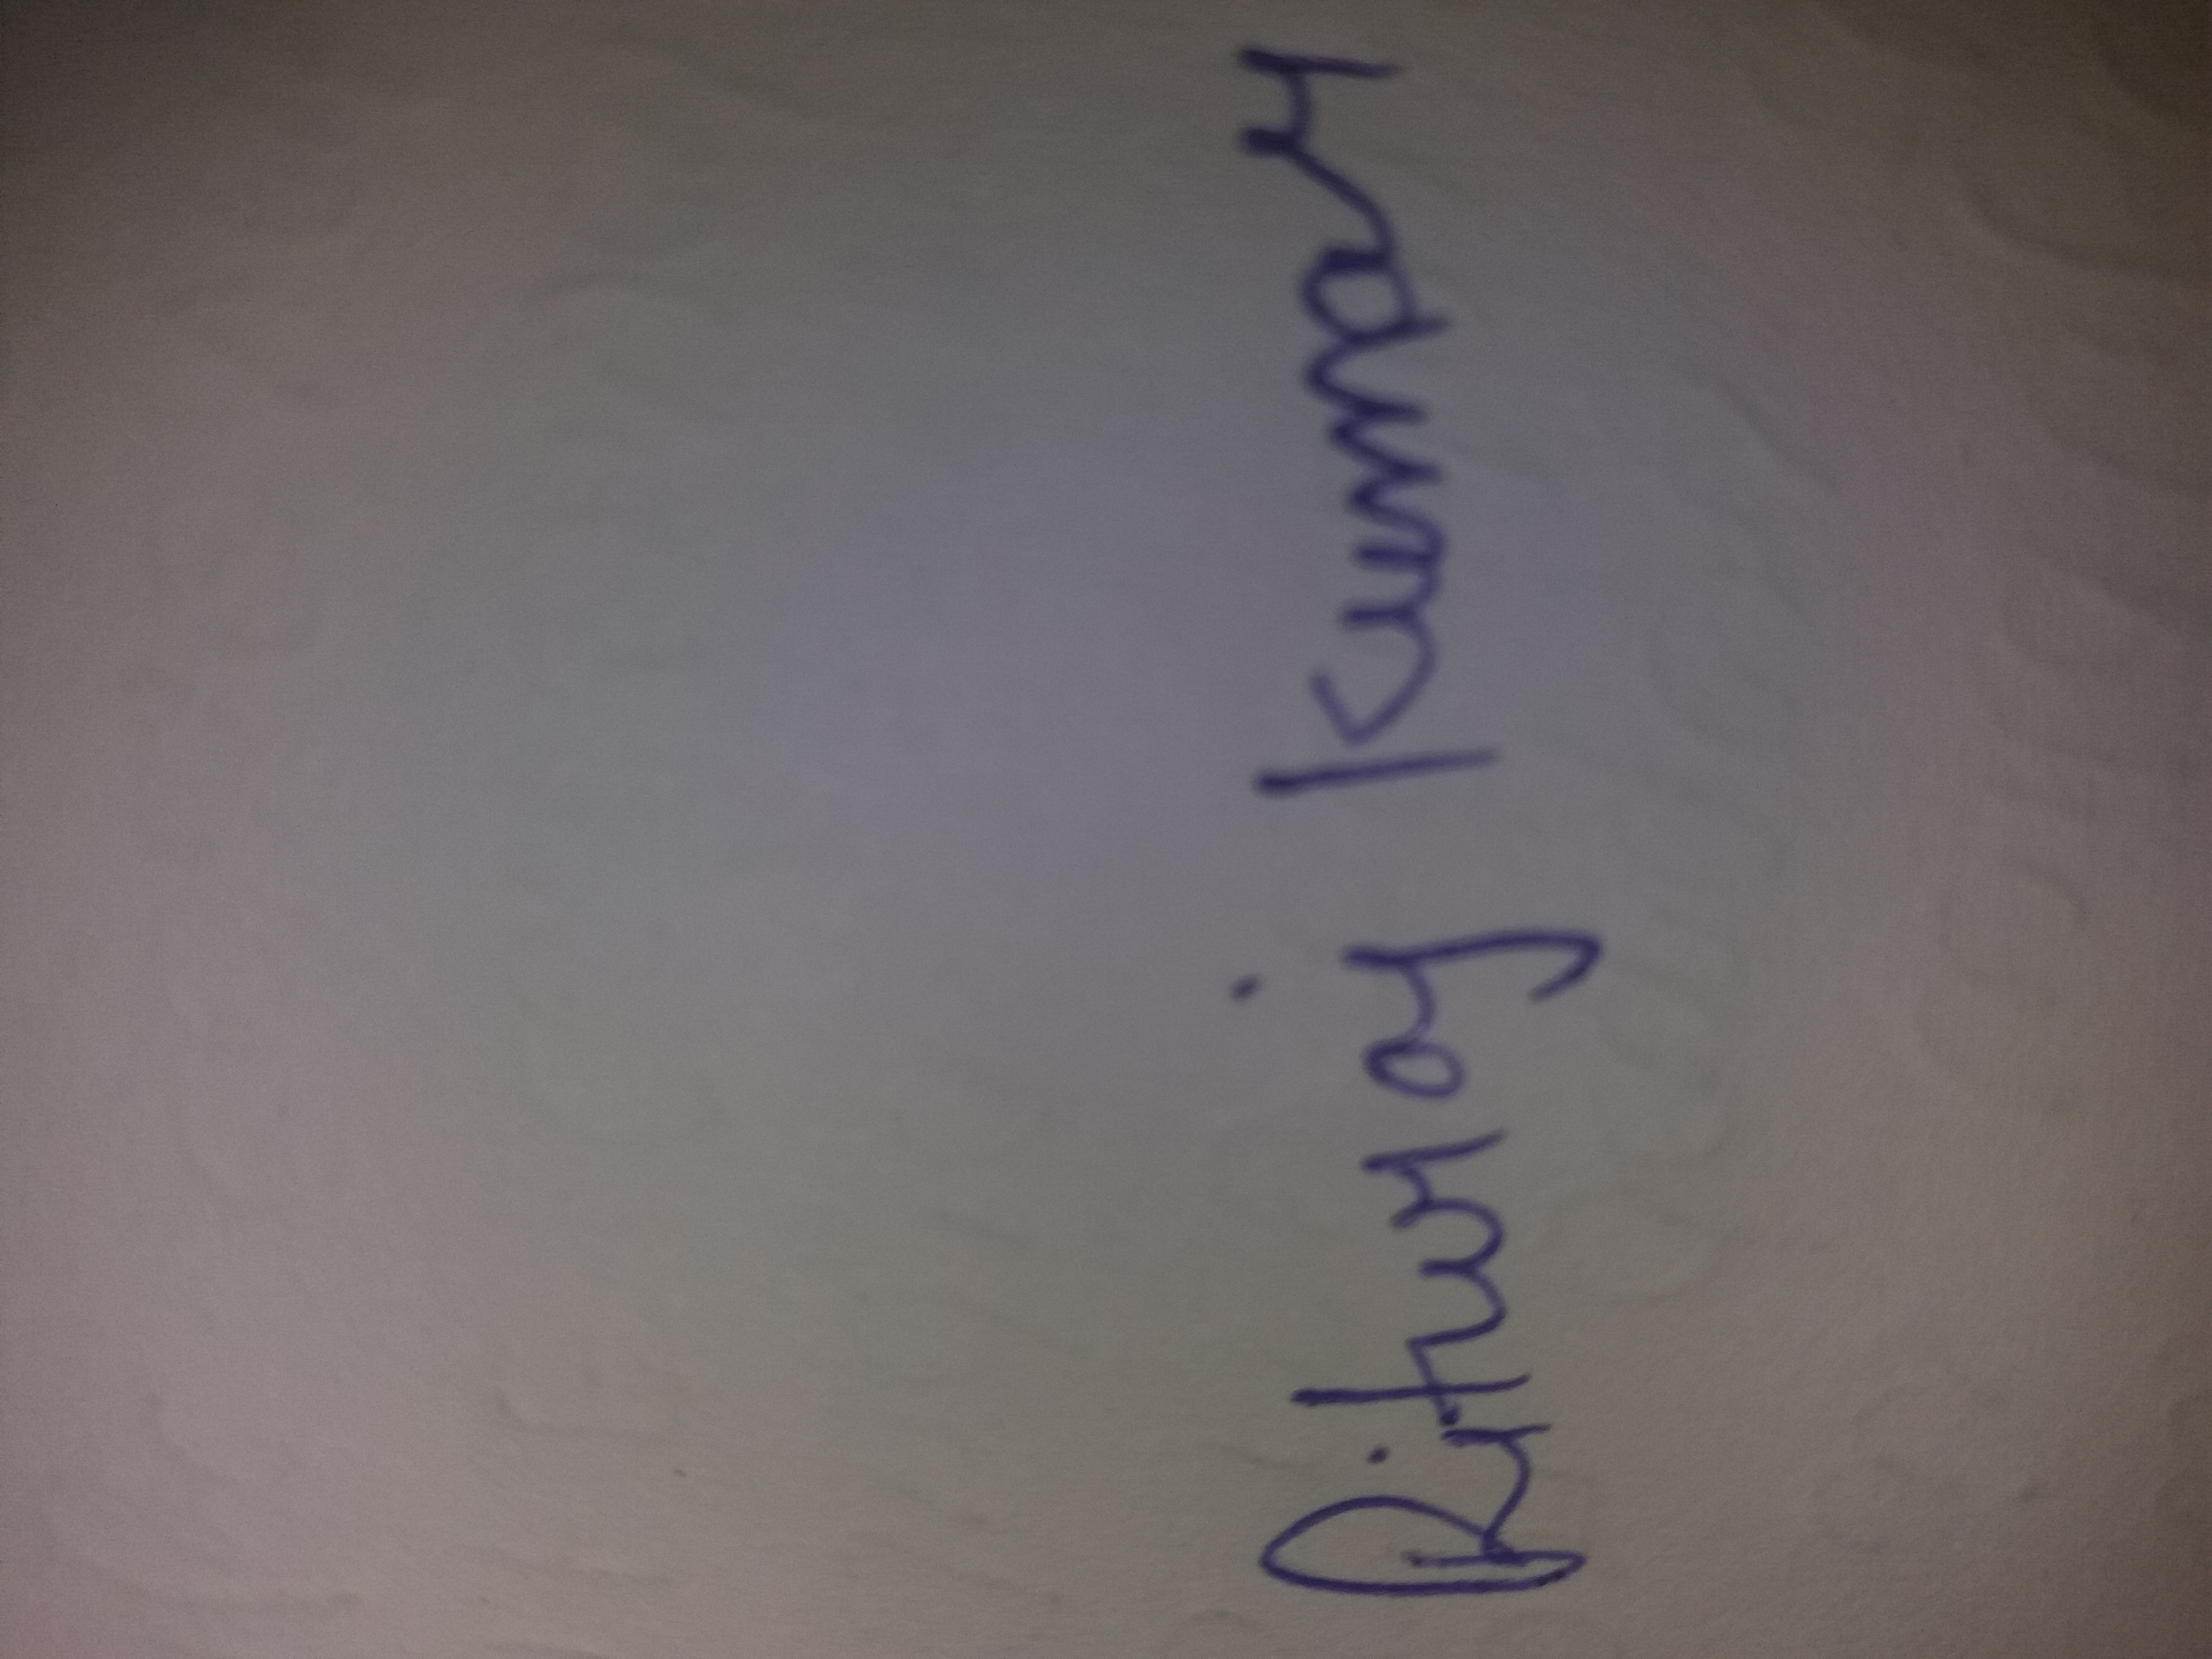 Rituraj Kumar